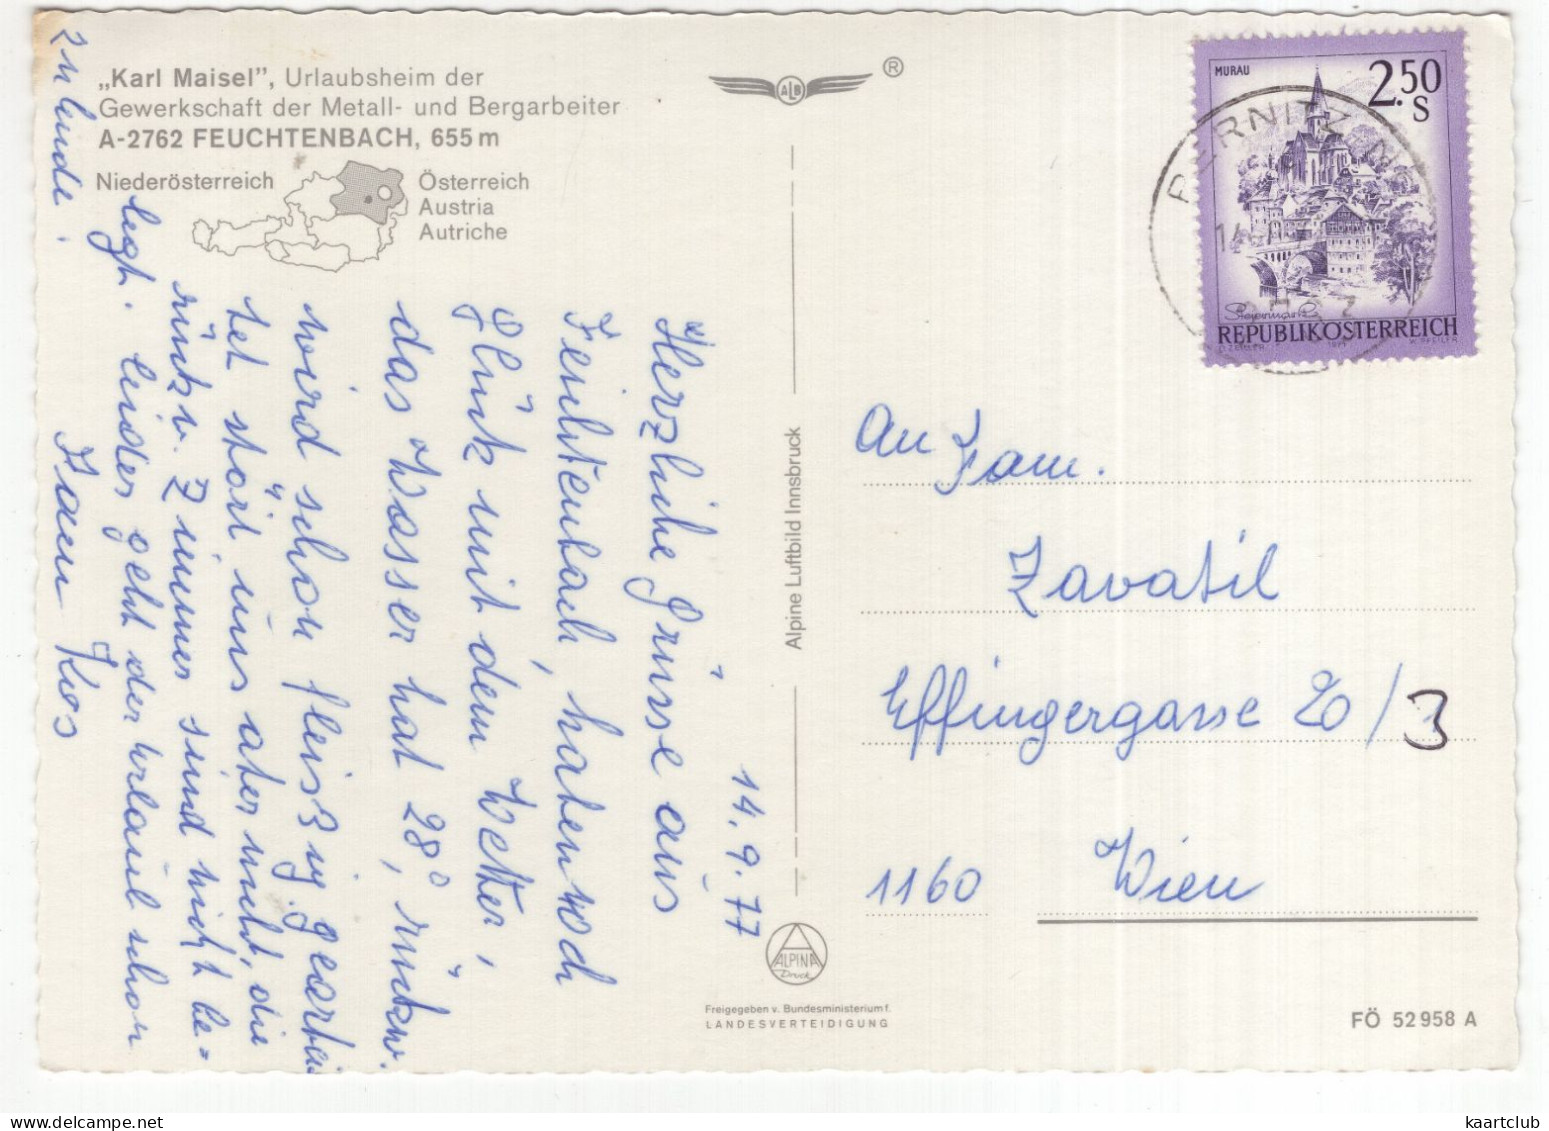 „Karl Maisel”, Urlaubsheim der
Gewerkschaft der Metall- und Bergarbeiter
A-2762 FEUCHTENBACH, 655 m
Niederösterreich
Österreich
Austria
Autriche
ALB
®
MURAU
2.50
S
Steiermark
REPUBLIK ÖSTERREICH
PERNITZ, NÖ
2763
14.9.77
Herzliche Grüsse aus
Feichtenbach, haben noch
Glück mit dem Wetter,
das Wasser hat 28°, rückw.
wird schon fleiszig gearbei
tet stört uns aber nicht, die
rückw. Zimmer sind nicht be=
legt. leider geht der Urlaub schon
zu Ende.
Fam Kios
Alpine Luftbild Innsbruck
ALPINA
Druck
Freigegeben v. Bundesministerium f.
LANDESVERTEIDIGUNG
An Fam.
Zavatil
Effingergasse 20/3
1160 Wien
FÖ 52 958 A
kaartclub